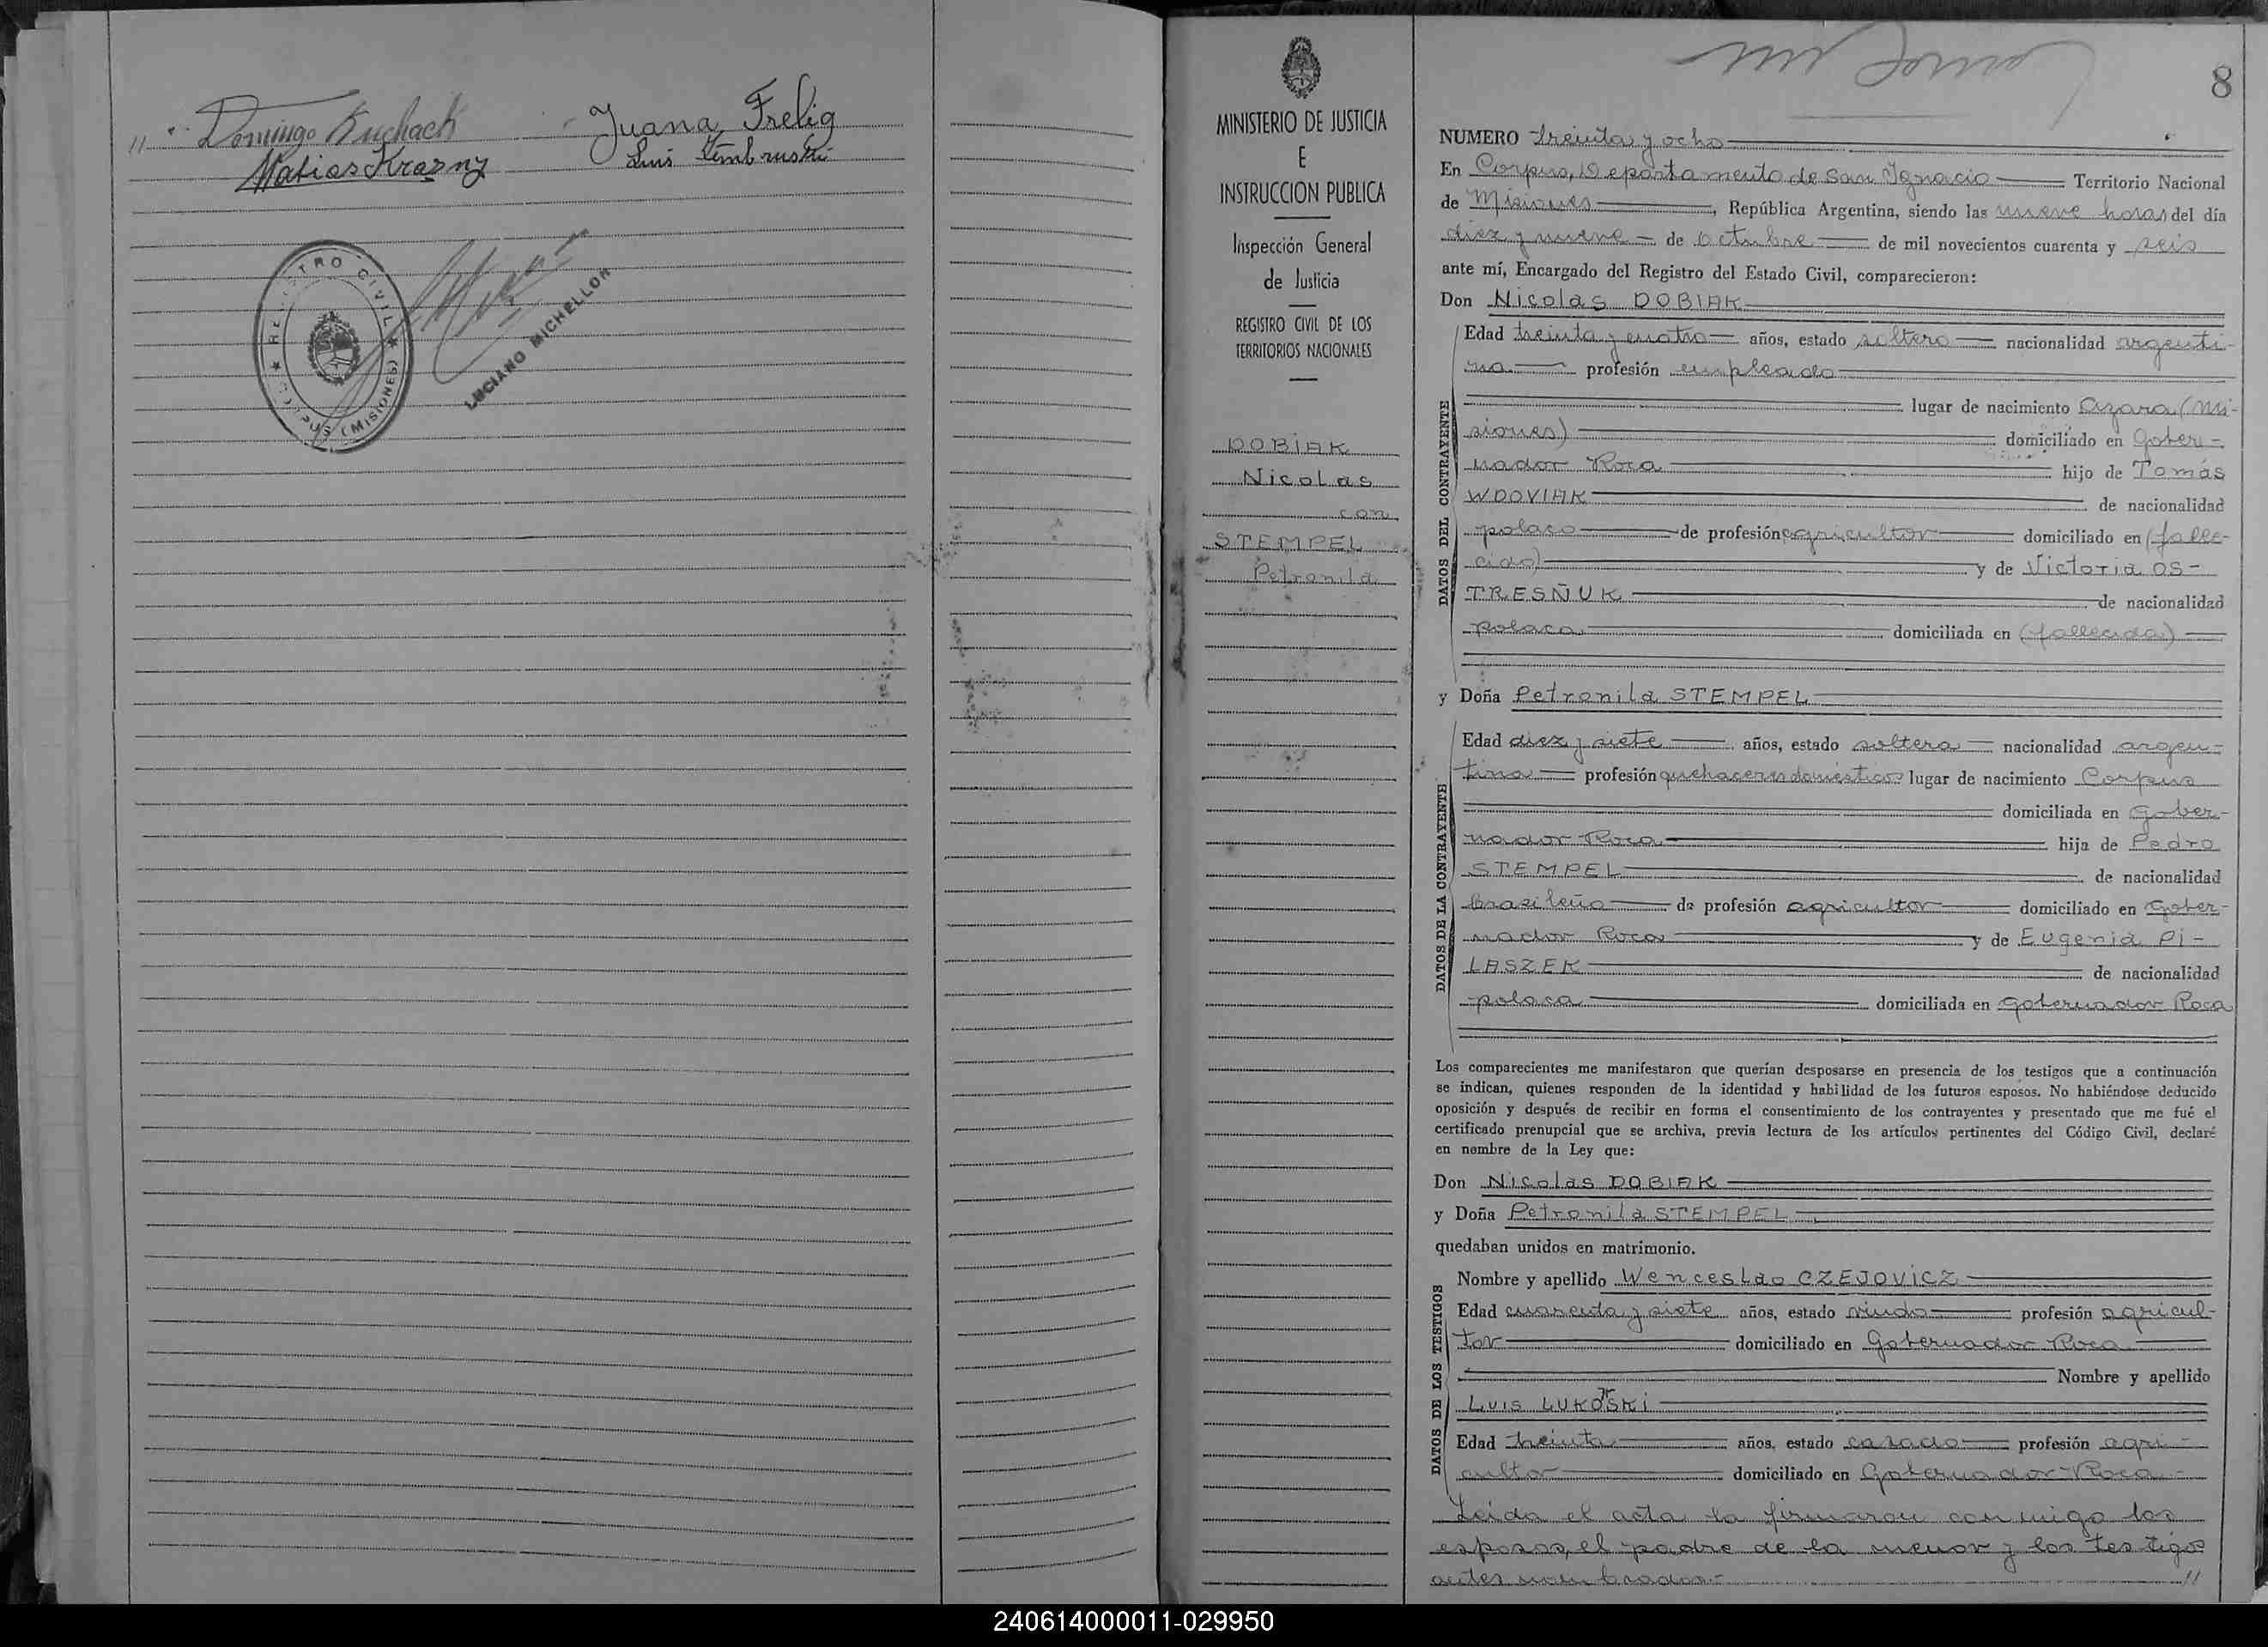 " Domingo Kuchach Juana Frelig
Matias Krasny Luis
REGISTRO CIVIL
CORPUS (MISIONES)
LUCIANO MICHELLOR
MINISTERIO DE JUSTICIA
E
INSTRUCCION PUBLICA
Inspección General
de Justicia
REGISTRO CIVIL DE LOS
TERRITORIOS NACIONALES
DOBIAK
Nicolas
con
STEMPEL
Petronila
8
NUMERO treinta y ocho
En Corpus, Departamento de San Ignacio Territorio Nacional
de Misiones, República Argentina, siendo las nueve horas del día
diez y nueve de octubre de mil novecientos cuarenta y seis
ante mí, Encargado del Registro del Estado Civil, comparecieron:
Don Nicolas DOBIAK
DATOS DEL CONTRAYENTE
Edad treinta y cuatro años, estado soltero nacionalidad argenti-
na profesión empleado
lugar de nacimiento Azara (Mi-
siones) domiciliado en Gober-
nador Roca hijo de Tomás
WDOVIAK de nacionalidad
polaco de profesión agricultor domiciliado en (falle-
cido) y de Victoria OS-
TRESÑUK de nacionalidad
polaca domiciliada en (fallecida)
y Doña Petronila STEMPEL
DATOS DE LA CONTRAYENTE
Edad diez y siete años, estado soltera nacionalidad argen-
tina profesión quehaceres domésticos lugar de nacimiento Corpus
domiciliada en Gober-
nador Roca hija de Pedro
STEMPEL de nacionalidad
brasileño de profesión agricultor domiciliado en Gober-
nador Roca y de Eugenia PI-
LASZEK de nacionalidad
polaca domiciliada en Gobernador Roca
Los comparecientes me manifestaron que querían desposarse en presencia de los testigos que a continuación
se indican, quienes responden de la identidad y habilidad de los futuros esposos. No habiéndose deducido
oposición y después de recibir en forma el consentimiento de los contrayentes y presentado que me fué el
certificado prenupcial que se archiva, previa lectura de los artículos pertinentes del Código Civil, declaré
en nombre de la Ley que:
Don Nicolas DOBIAK
y Doña Petronila STEMPEL
quedaban unidos en matrimonio.
DATOS DE LOS TESTIGOS
Nombre y apellido Wenceslao CZEJOVICZ
Edad cuarenta y siete años, estado viudo profesión agricul-
tor domiciliado en Gobernador Roca
Nombre y apellido
Luis LUKOSKI
Edad treinta años, estado casado profesión agri-
cultor domiciliado en Gobernador Roca
Leida el acta la firmaron conmigo los
esposos, el padre de la menor y los testigos
antes nombrados.- //
240614000011-029950